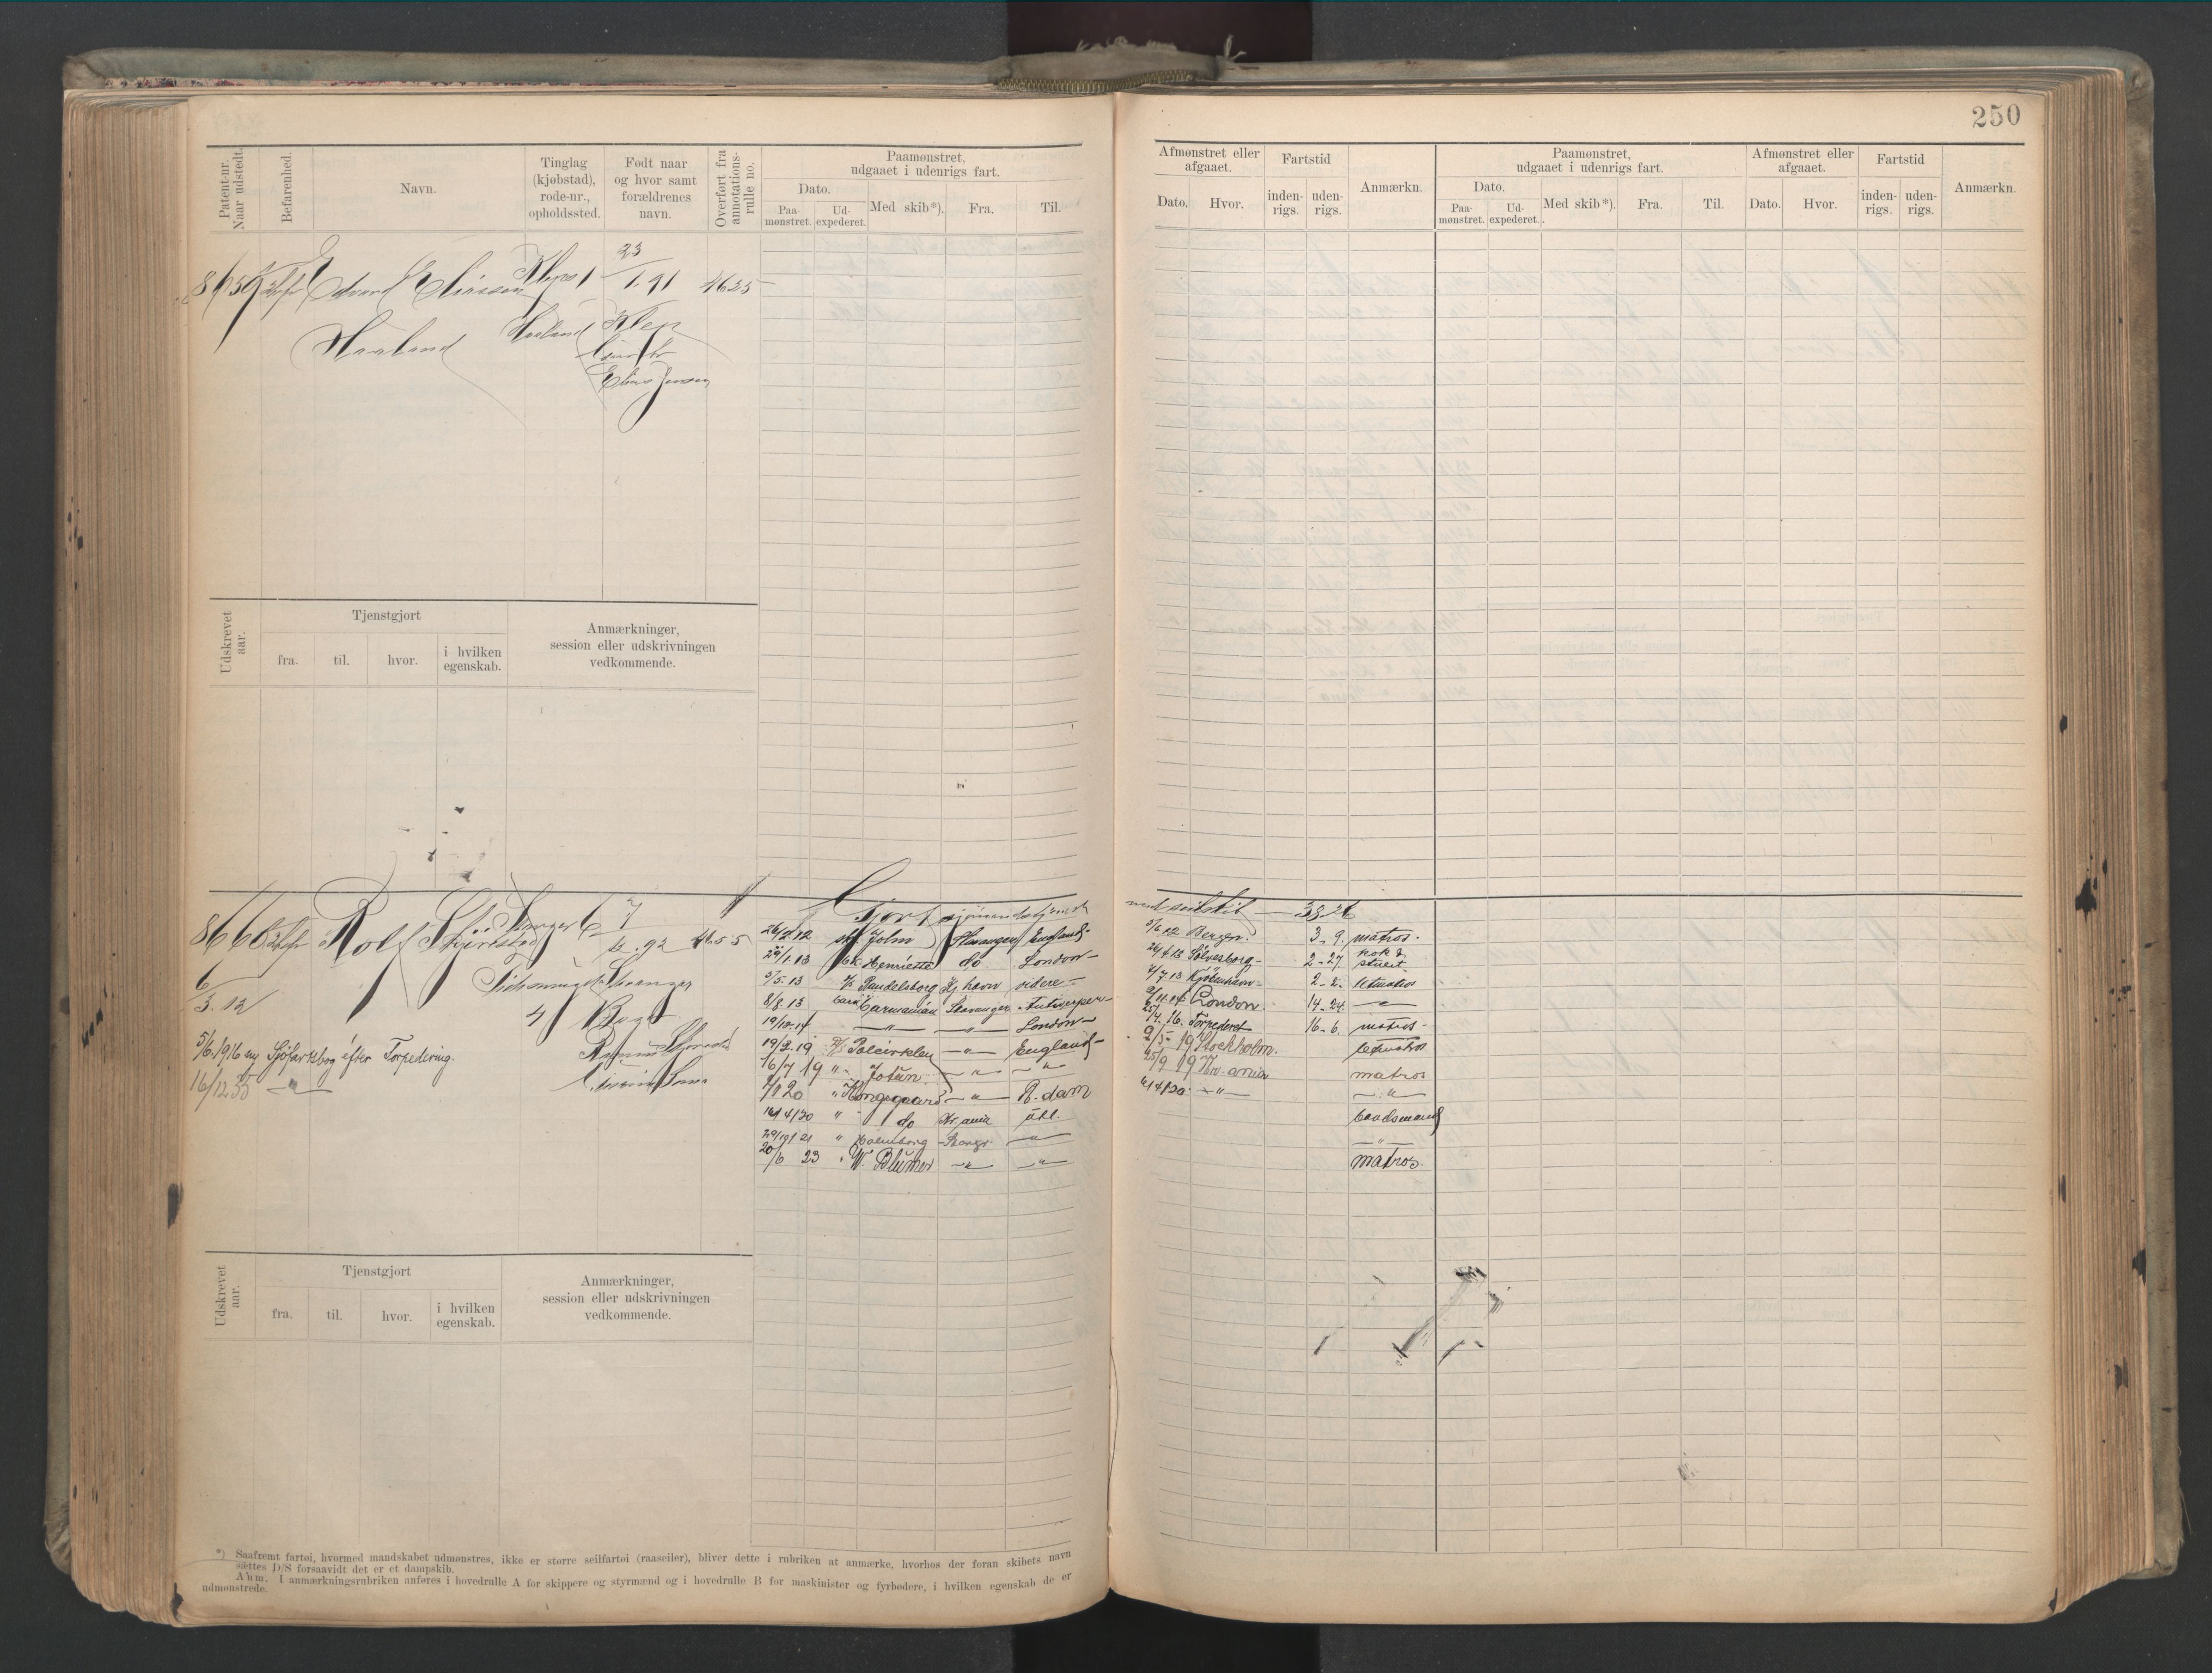 250
Patent-nr. Naar udstedt.
Befarenhed.
Navn.
Tinglag (kjøbstad), rode-nr., opholdssted.
Født naar og hvor samt forældrenes navn.
Overført fra annotations-rulle no.
Paamønstret, udgaaet i udenrigs fart.
Dato.
Paa-mønstret.
Ud-expederet.
Med skib*).
Fra.
Til.
Afmønstret eller afgaaet.
Dato.
Hvor.
Fartstid
inden-rigs.
uden-rigs.
Anmærkn.
Paamønstret, udgaaet i udenrigs fart.
Dato.
Paa-mønstret.
Ud-expederet.
Med skib*).
Fra.
Til.
Afmønstret eller afgaaet.
Dato.
Hvor.
Fartstid
inden-rigs.
uden-rigs.
Anmærkn.
8659 Edvard Eliassen Klep 23/1.91 4625
Haaland Haaland Klep
Elias Jensen
Udskrevet aar.
Tjenstgjort
fra.
til.
hvor.
i hvilken egenskab.
Anmærkninger, session eller udskrivningen vedkommende.
8660 Rolf
6/3.12 Stavanger
5/6.1916 ny Sjöfartsbog efter Torpedering.
16/12 35 —"—
med seilskib — 33-26
26/2.12 Jolm Stavanger England 5/6 12 Bergen. 3-9. matros.
29/1.13 Henriette do London 26/4 13 Sölvesborg 2-27. kok & stuert
5/5.13 Randelsborg Kj havn videre 7/7.13 Kjöbenhavn 2-2. letmatros
8/8.13 Carmanian Stavanger Antwerpen London. 14-24. —"—
19/12.14 —"— —"— London 25/4.16. Torpederet 16-6. matros
19/2.19 Polcirklen —"— England 2/5-19 Stockholm. letmatros
16/7 19 " Jotun —"— —"— 25/9 19 Kr.ania matros
1/1 20 " Kongsgaard —"— R.dam 6/4/20 —"— —"—
16/4/20 " do Kr.ania utl. baadsmand
29/9/21 " Stavgr. —"— —"—
20/6 23 " W. Blumer —"— —"— matros.
Udskrevet aar.
Tjenstgjort
fra.
til.
hvor.
i hvilken egenskab.
Anmærkninger, session eller udskrivningen vedkommende.
*) Saafremt fartøi, hvormed mandskabet udmønstres, ikke er større seilfartøi (raaseiler), bliver dette i rubriken at anmærke, hvorhos der foran skibets navn
sættes D/S forsaavidt det er et dampskib.
Anm. I anmærkningsrubriken anføres i hovedrulle A for skippere og styrmænd og i hovedrulle B for maskinister og fyrbødere, i hvilken egenskab de er
udmønstrede.